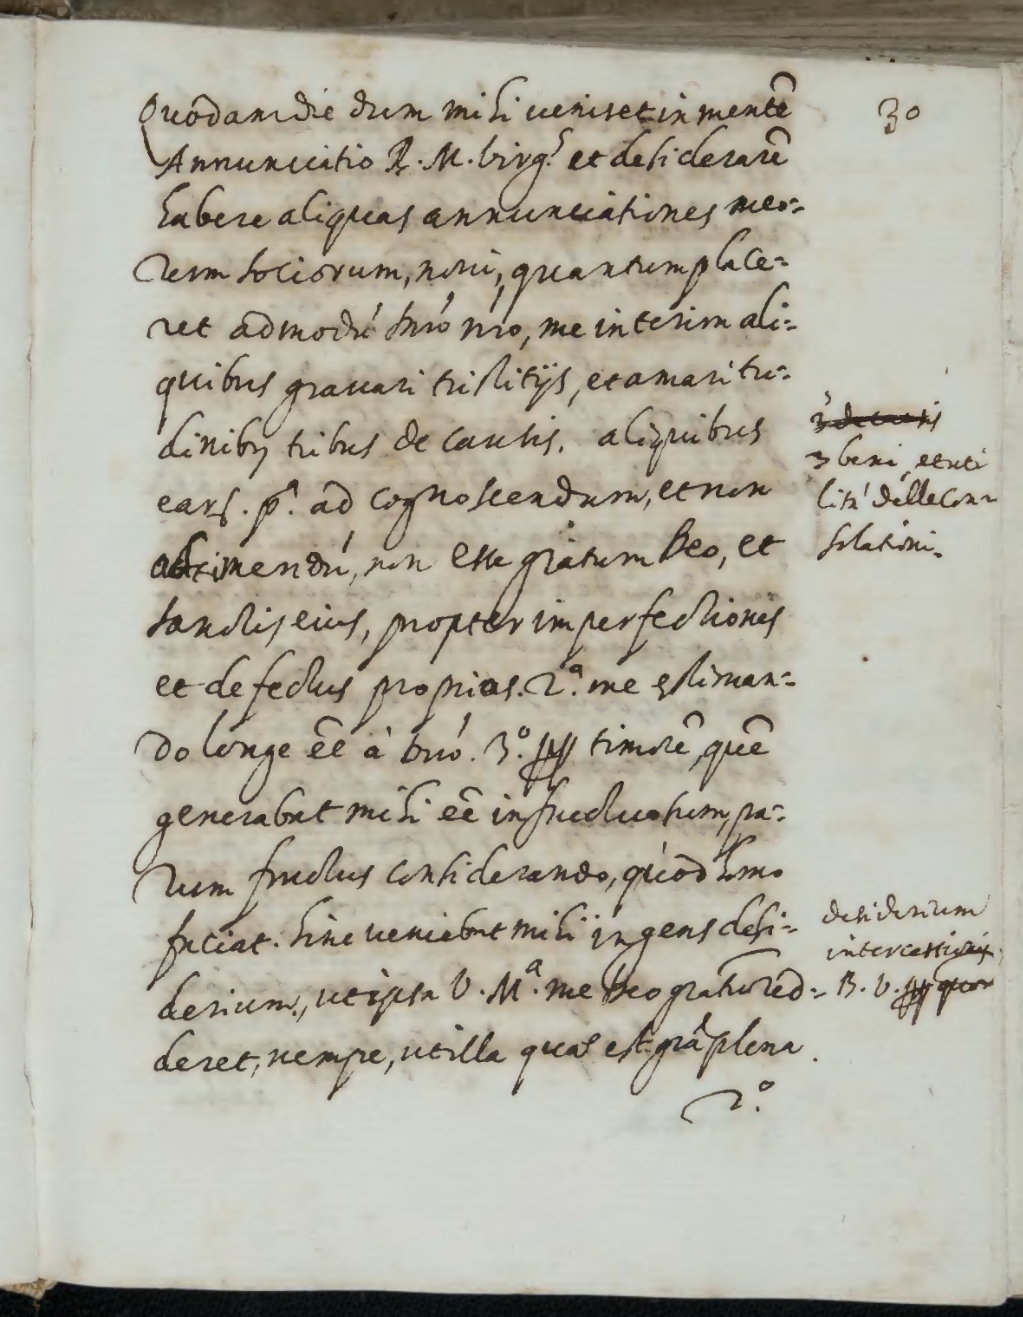 30
Quōdam die dum mihi veniret in mentē
Annunciatio B. M. virg.s et desiderarē
habere aliquas annunciationes meo=
rum sociorum, novi, quantum place=
ret admodū dn̄o nr̄o, me interim ali=
quibus gravari tristitijs, et amaritu=
dinibq tribus de causis. aliquibus
ears. pa. ad cognoscendum, et non
mendū, non esse gratum Deo, et
sanctis eius, propter imperfectionis
et defectus proprias. 2.a me estiman=
do longe eē à Dn̄o. 3.o timorē, quē
generabat mihi eē infructuosum, pa=
rum fructus considerando, quòd homo
faciat. hinc veniebat mihi ingens desi=
derium, ut ipsa V. M.a me Deo gratū red=
deret, nempe, ut illa quae est grā plena.
2.o
3 beni, et uti
litā delle con=
solationi.
desiderium
intercessionis
B. V.